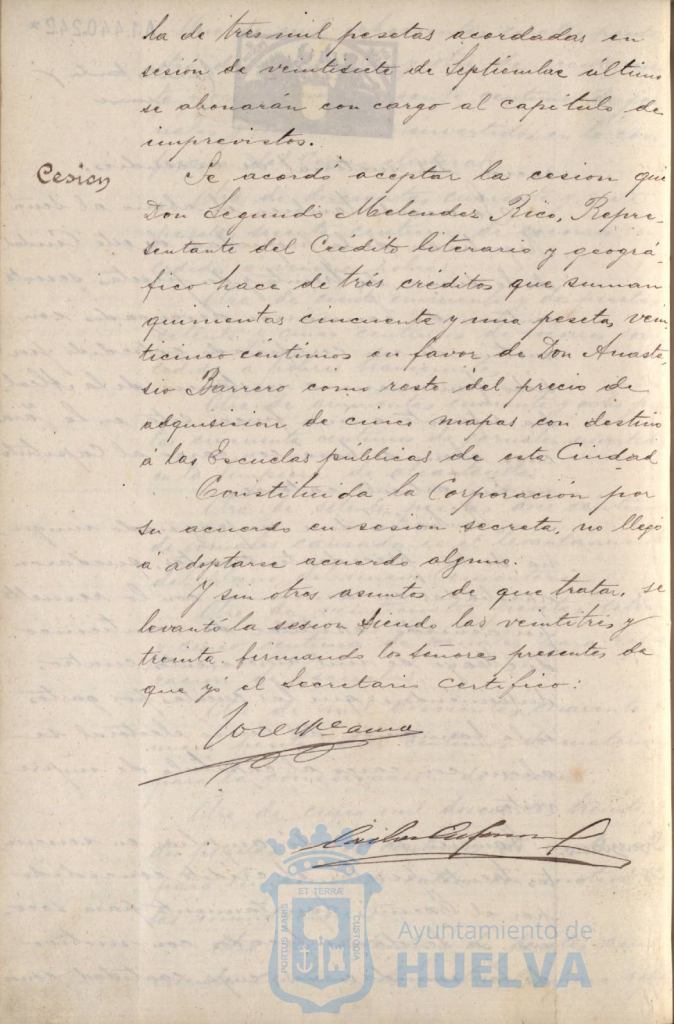 A1440242*
la de tres mil pesetas acordadas en
sesión de veintisiete de Septiembre último
se abonarán con cargo al capítulo de
imprevistos.
Cesion
Se acordó aceptar la cesion que
Don Segundo Melendez Rico, Repre-
sentante del Crédito literario y geográ-
fico hace de trés créditos que suman
quinientas cincuenta y una pesetas vein-
ticinco céntimos en favor de Don Anasta-
sio Barrero como resto del precio de
adquisicion de cinco mapas con destino
á las Escuelas públicas de esta Ciudad
Constituida la Corporación por
su acuerdo en sesion secreta, no llegó
á adoptarse acuerdo alguno.
Y sin otros asuntos de que tratar, se
levantó la sesion siendo las veintitres y
treinta, firmando los Señores presentes de
que yó el Secretario certifico:
PORTUS MARIS
ET TERRÆ
CUSTODIA
Ayuntamiento de
HUELVA